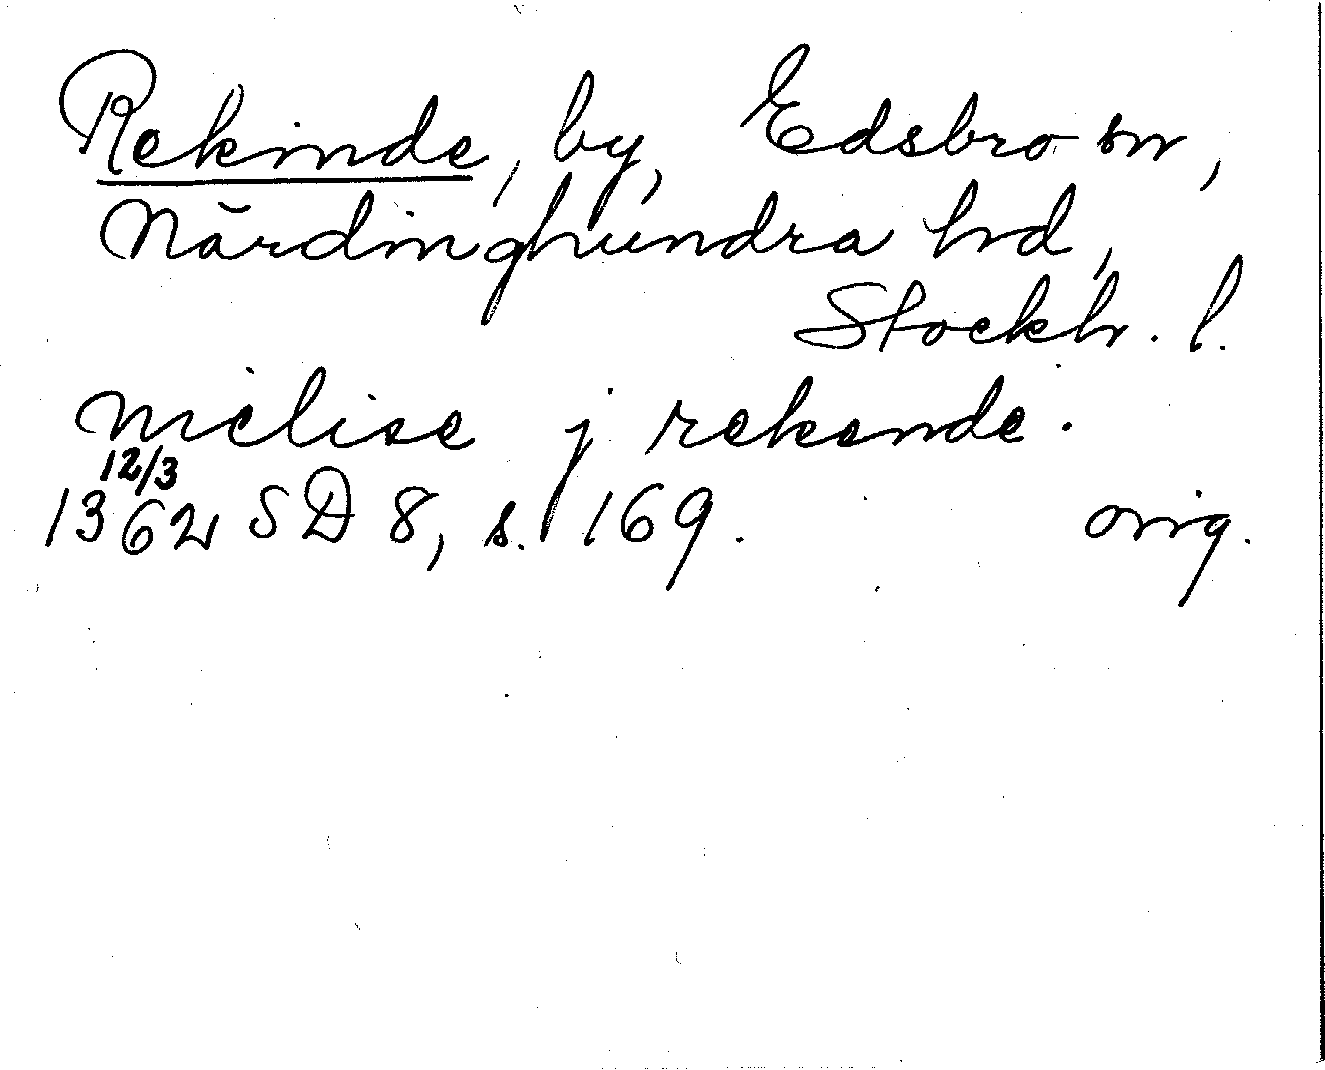 Rekinde, by, Edsbro sn,
Närdinghundra hd,
Stockh. l.
niclise j rekende.
12/3
1362 SD 8, s. 169. orig.